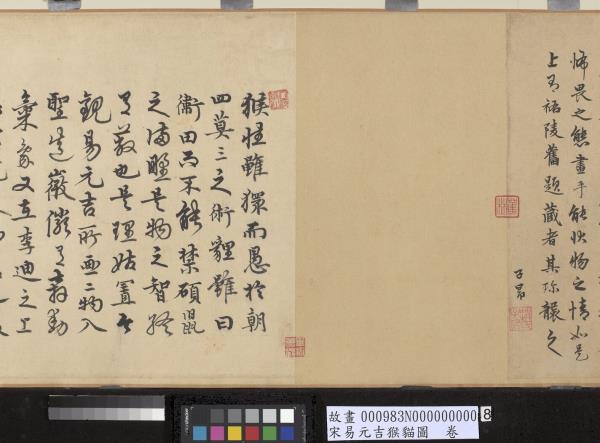 怖畏之態畫手能狀物之情如是
上有祐陵舊題藏者其珍襲之
子昂
猴性雖獧而愚於朝
四莫三之術貍雖曰
衛田而不能禁碩鼠
之滿野是物之智終
有蔽也是理姑置之
觀易元吉所畫二物入
聖造微儼有奔動
氣象又在李迪之上
故畫 000983N000000000 8
宋易元吉猴貓圖 卷